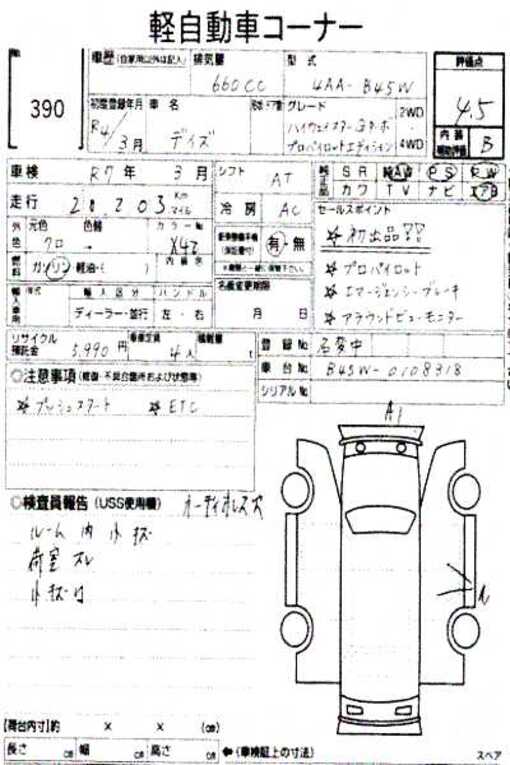 軽自動車コーナー
390
車歴 (自家用以外は記入) 排気量 660 CC 型式 4AA-B45W 評価点 4.5
初度登録年月 R4/3月 車名 デイズ グレード ハイウェイスターGターボ プロパイロットエディション 2WD 4WD 内装 B
車検 R7年 3月 シフト AT SR 純AW PS PW
カワ TV ナビ エアB
走行 28,203 Km マイル 冷房 AC セールスポイント
外色 元色 クロ 色替 カラーNo X42 有・無 ※初出品!!
燃料 ガソリン 軽油・( ) 内装色 ※プロパイロット
名義変更期限 月 日 ※エマージェンシーブレーキ
輸入車用 年式 輸入区分 ハンドル ※アラウンドビューモニター
ディーラー・並行 左・右
リサイクル預託金 5,990円 乗車定員 4人 積載量 t 登録No 名変中
車台No B45W-0108318
シリアルNo
◎注意事項 (修復・不具合箇所および状態等)
※プッシュスタート ※ETC
A1
◎検査員報告 (USS使用欄) オーディオレス穴
ルーム内小キズ
荷室スレ
小キズ凹
【荷台内寸】約 × × (cm)
長さ cm 幅 cm 高さ cm ←(車検証上の寸法) スペア